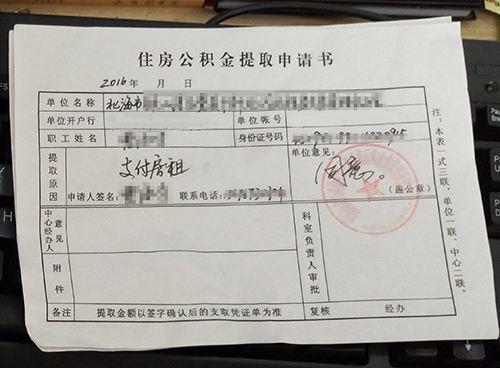 住房公积金提取申请书
2016 年 月 日
单位名称 北海市
单位开户行 单位帐号
职工姓名 身份证号码
提取原因 支付房租
申请人签名: 联系电话:
单位意见: 同意。
(盖公章)
中心经办人意见
科室负责人审批
附件
备注 提取金额以签字确认后的支取凭证单为准 复核 经办
注:本表一式三联,单位一联、中心二联。